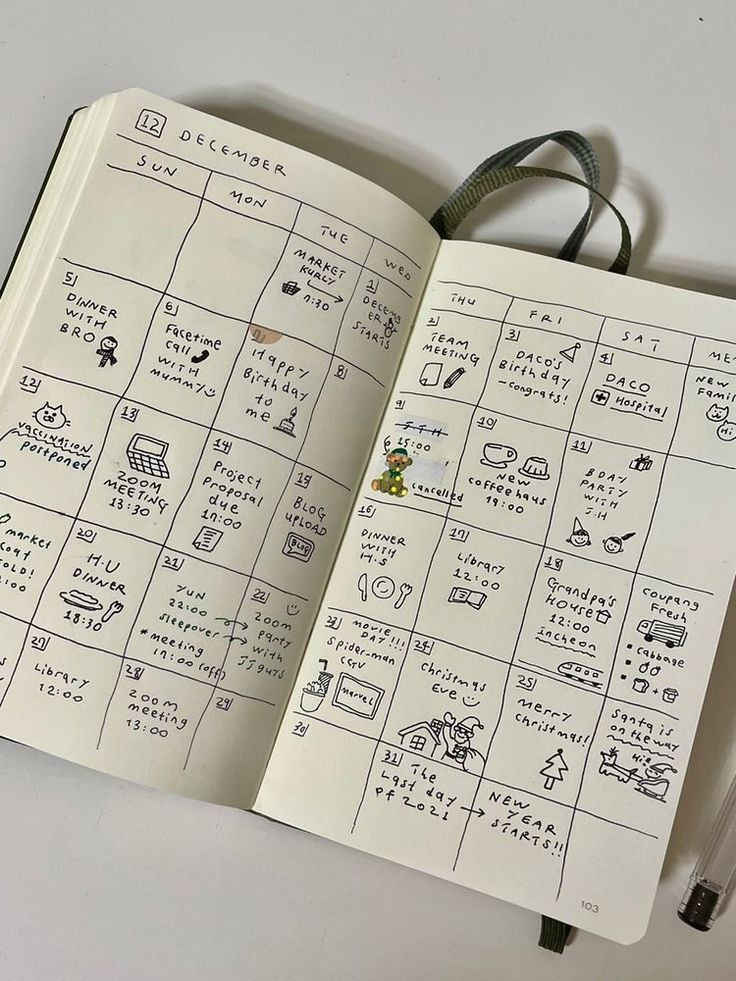 12 DECEMBER
SUN
MON
TUE
WED
MARKET
KURLY
7:30
1
DECEMB
ER
STARTS
5
DINNER
WITH
BRO
6
Facetime
call
WITH
MUMMY
7
Happy
Birthday
to
me
8
12
VACCINATION
postponed
13
ZOOM
MEETING
13:30
14
Project
Proposal
due
17:00
15
BLOG
UPLOAD
BLOG
market
20
H.U
DINNER
18:30
21
YUN
22:00
sleepover
*meeting
17:00 (off)
22
ZOOM
party
with
JJ guys
27
Library
12:00
28
ZOOM
meeting
13:00
29
THU
FRI
SAT
ME
2
TEAM
MEETING
3
DACO's
Birthday
-congrats!
4
DACO
Hospital
New
Famil
Hi
9
J.J.H
15:00
cancelled
10
NEW
coffeehaus
19:00
11
BDAY
PARTY
WITH
J.H
16
DINNER
WITH
H.S
17
Library
12:00
18
Grandpa's
House
12:00
incheon
Coupang
Fresh
cabbage
+
23
MOVIE
DAY!!!
Spider-man
CGV
Marvel
24
Christmas
Eve
25
Merry
Christmas!
Santa is
on the way
30
31
The
Last day
of 2021
NEW
YEAR
STARTS!!
103